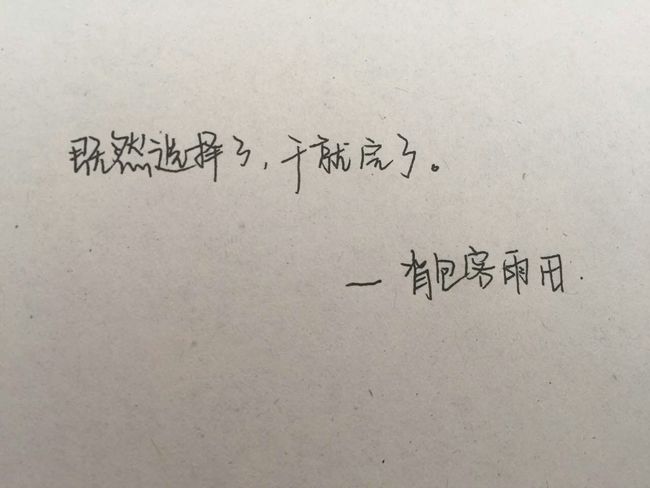 既然选择了，干就完了。
一背包客雨田.